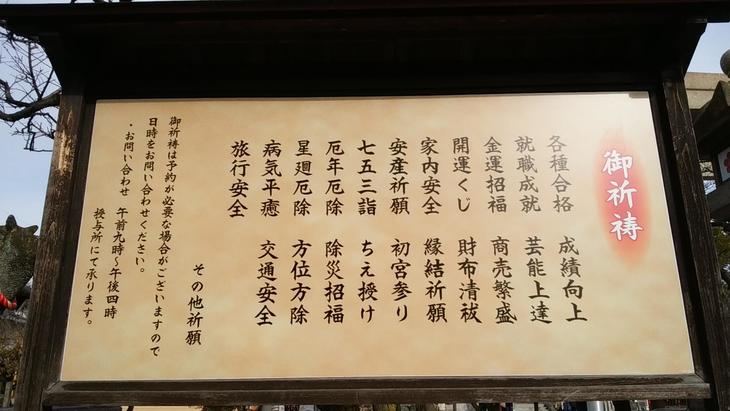 御祈祷
各種合格 成績向上
就職成就 芸能上達
金運招福 商売繁盛
開運くじ 財布清祓
家内安全 縁結祈願
安産祈願 初宮参り
七五三詣 ちえ授け
厄年厄除 除災招福
星廻厄除 方位方除
病気平癒 交通安全
旅行安全
その他祈願
御祈祷は予約が必要な場合がございますので
日時をお問い合わせください。
・お問い合わせ 午前九時〜午後四時
授与所にて承ります。